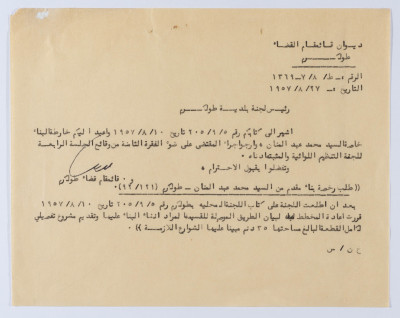 ديوان قائمقام القضاء
طولكرم
الرقم ط/ ٧/٨-١٣٦٩
التاريخ ١٩٥٧/٨/٢٧
رئيس لجنة بلدية طولكرم
اشير الى كتابكم رقم ٢٠٥/٦/٥ تاريخ ١٩٥٧/٨/١٠ واعيد اليكم خارطة البناء
خاصة السيد محمد عبد المنان وارجو اجراء المقتضى على ضوء الفقرة الثامنة من وقائع الجلسة الرابعة
للجنة التنظيم اللوائية والمثبتة ادناه
وتفضلوا بقبول الاحترام
قائمقام قضاء طولكرم
((طلب رخصة بناء مقدم من السيد محمد عبد المنان - طولكرم (١٢١/
بعد ان اطلعت اللجنة على كتاب اللجنة المحلية بطولكرم رقم ٢٠٥/٦/٥ تاريخ ١٩٥٧/٨/١٠
قررت اعادة المخطط لبيان الطريق الموصلة للقسيمة المراد انشاء البناء عليها وتقديم مشروع تفصيلي
لكامل القطعة البالغ مساحتها ٣٥ دنم مبينا عليها الشوارع اللازمة))